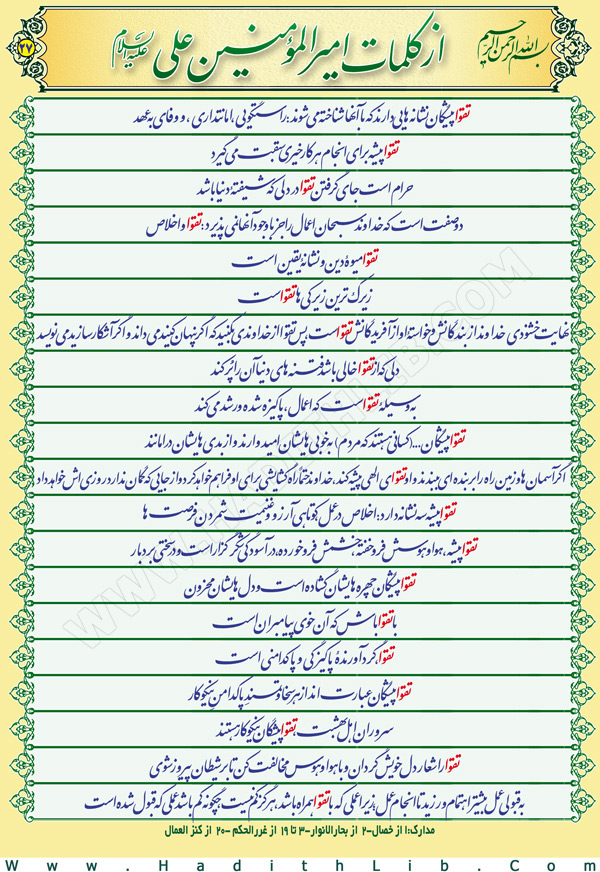 بسم الله الرحمن الرحیم
از کلمات امیرالمؤمنین علی علیه السلام
۲۷
تقواپیشگان نشانه هایی دارند که با آنها شناخته می شوند: راستگویی، امانتداری، و وفای به عهد
تقواپیشه برای انجام هر کار خیری سبقت می گیرد
حرام است جای گرفتن تقوا در دلی که شیفته دنیا باشد
دو صفت است که خداوند سبحان اعمال را جز با وجود آنها نمی پذیرد: تقوا و اخلاص
تقوا میوۀ دین و نشانۀ یقین است
زیرک ترین زیرکی ها تقوا است
نهایت خشنودی خداوند از بندگانش و خواستۀ او از آفریدگانش تقوا است، پس تقوا از خداوندی بکنید که اگر پنهان کنید می داند و اگر آشکار سازید می نویسد
دلی که از تقوا خالی باشد فتنه های دنیا آن را پر کند
به وسیلۀ تقوا است که اعمال، پاکیزه شده و رشد می کند
تقوا پیشگان ...(کسانی هستند که مردم) به خوبی هایشان امیدوارند و از بدی هایشان در امانند
اگر آسمان ها و زمین راه را بر بنده ای ببندند و او تقوای الهی پیشه کند، خداوند حتماً راه گشایشی برای او فراهم خواهد کرد و از جایی که گمان ندارد روزی اش خواهد داد
تقواپیشه سه نشانه دارد: اخلاص در عمل، کوتاهی آرزو و غنیمت شمردن فرصت ها
تقواپیشه، هوا و هوسش فروخفته، خشمش فروخورده، در آسودگی شکرگزار است و در سختی بردبار
تقواپیشگان چهره هایشان گشاده است و دل هایشان محزون
با تقوا باش که آن خوی پیامبران است
تقوا، گردآورندۀ پاکیزگی و پاکدامنی است
تقواپیشگان عبارت اند از هر سخاوتمندِ پاکدامنِ نیکوکار
سروران اهل بهشت، تقواپیشگان نیکوکار هستند
تقوا را شعار دل خویش گردان و با هوا و هوس مخالفت کن تا بر شیطان پیروز شوی
به قبولی عمل بیشتر اهتمام ورزید تا انجام عمل؛ زیرا عملی که با تقوا همراه باشد، هرگز کم نیست، چگونه کم باشد عملی که قبول شده است
مدارک:۱ از خصال-۲ از بحارالانوار-۳ تا ۱۹ از غررالحکم -۲۰ از کنز العمال
Www.HadithLib.Com
WWW.HADITHLIB.COM